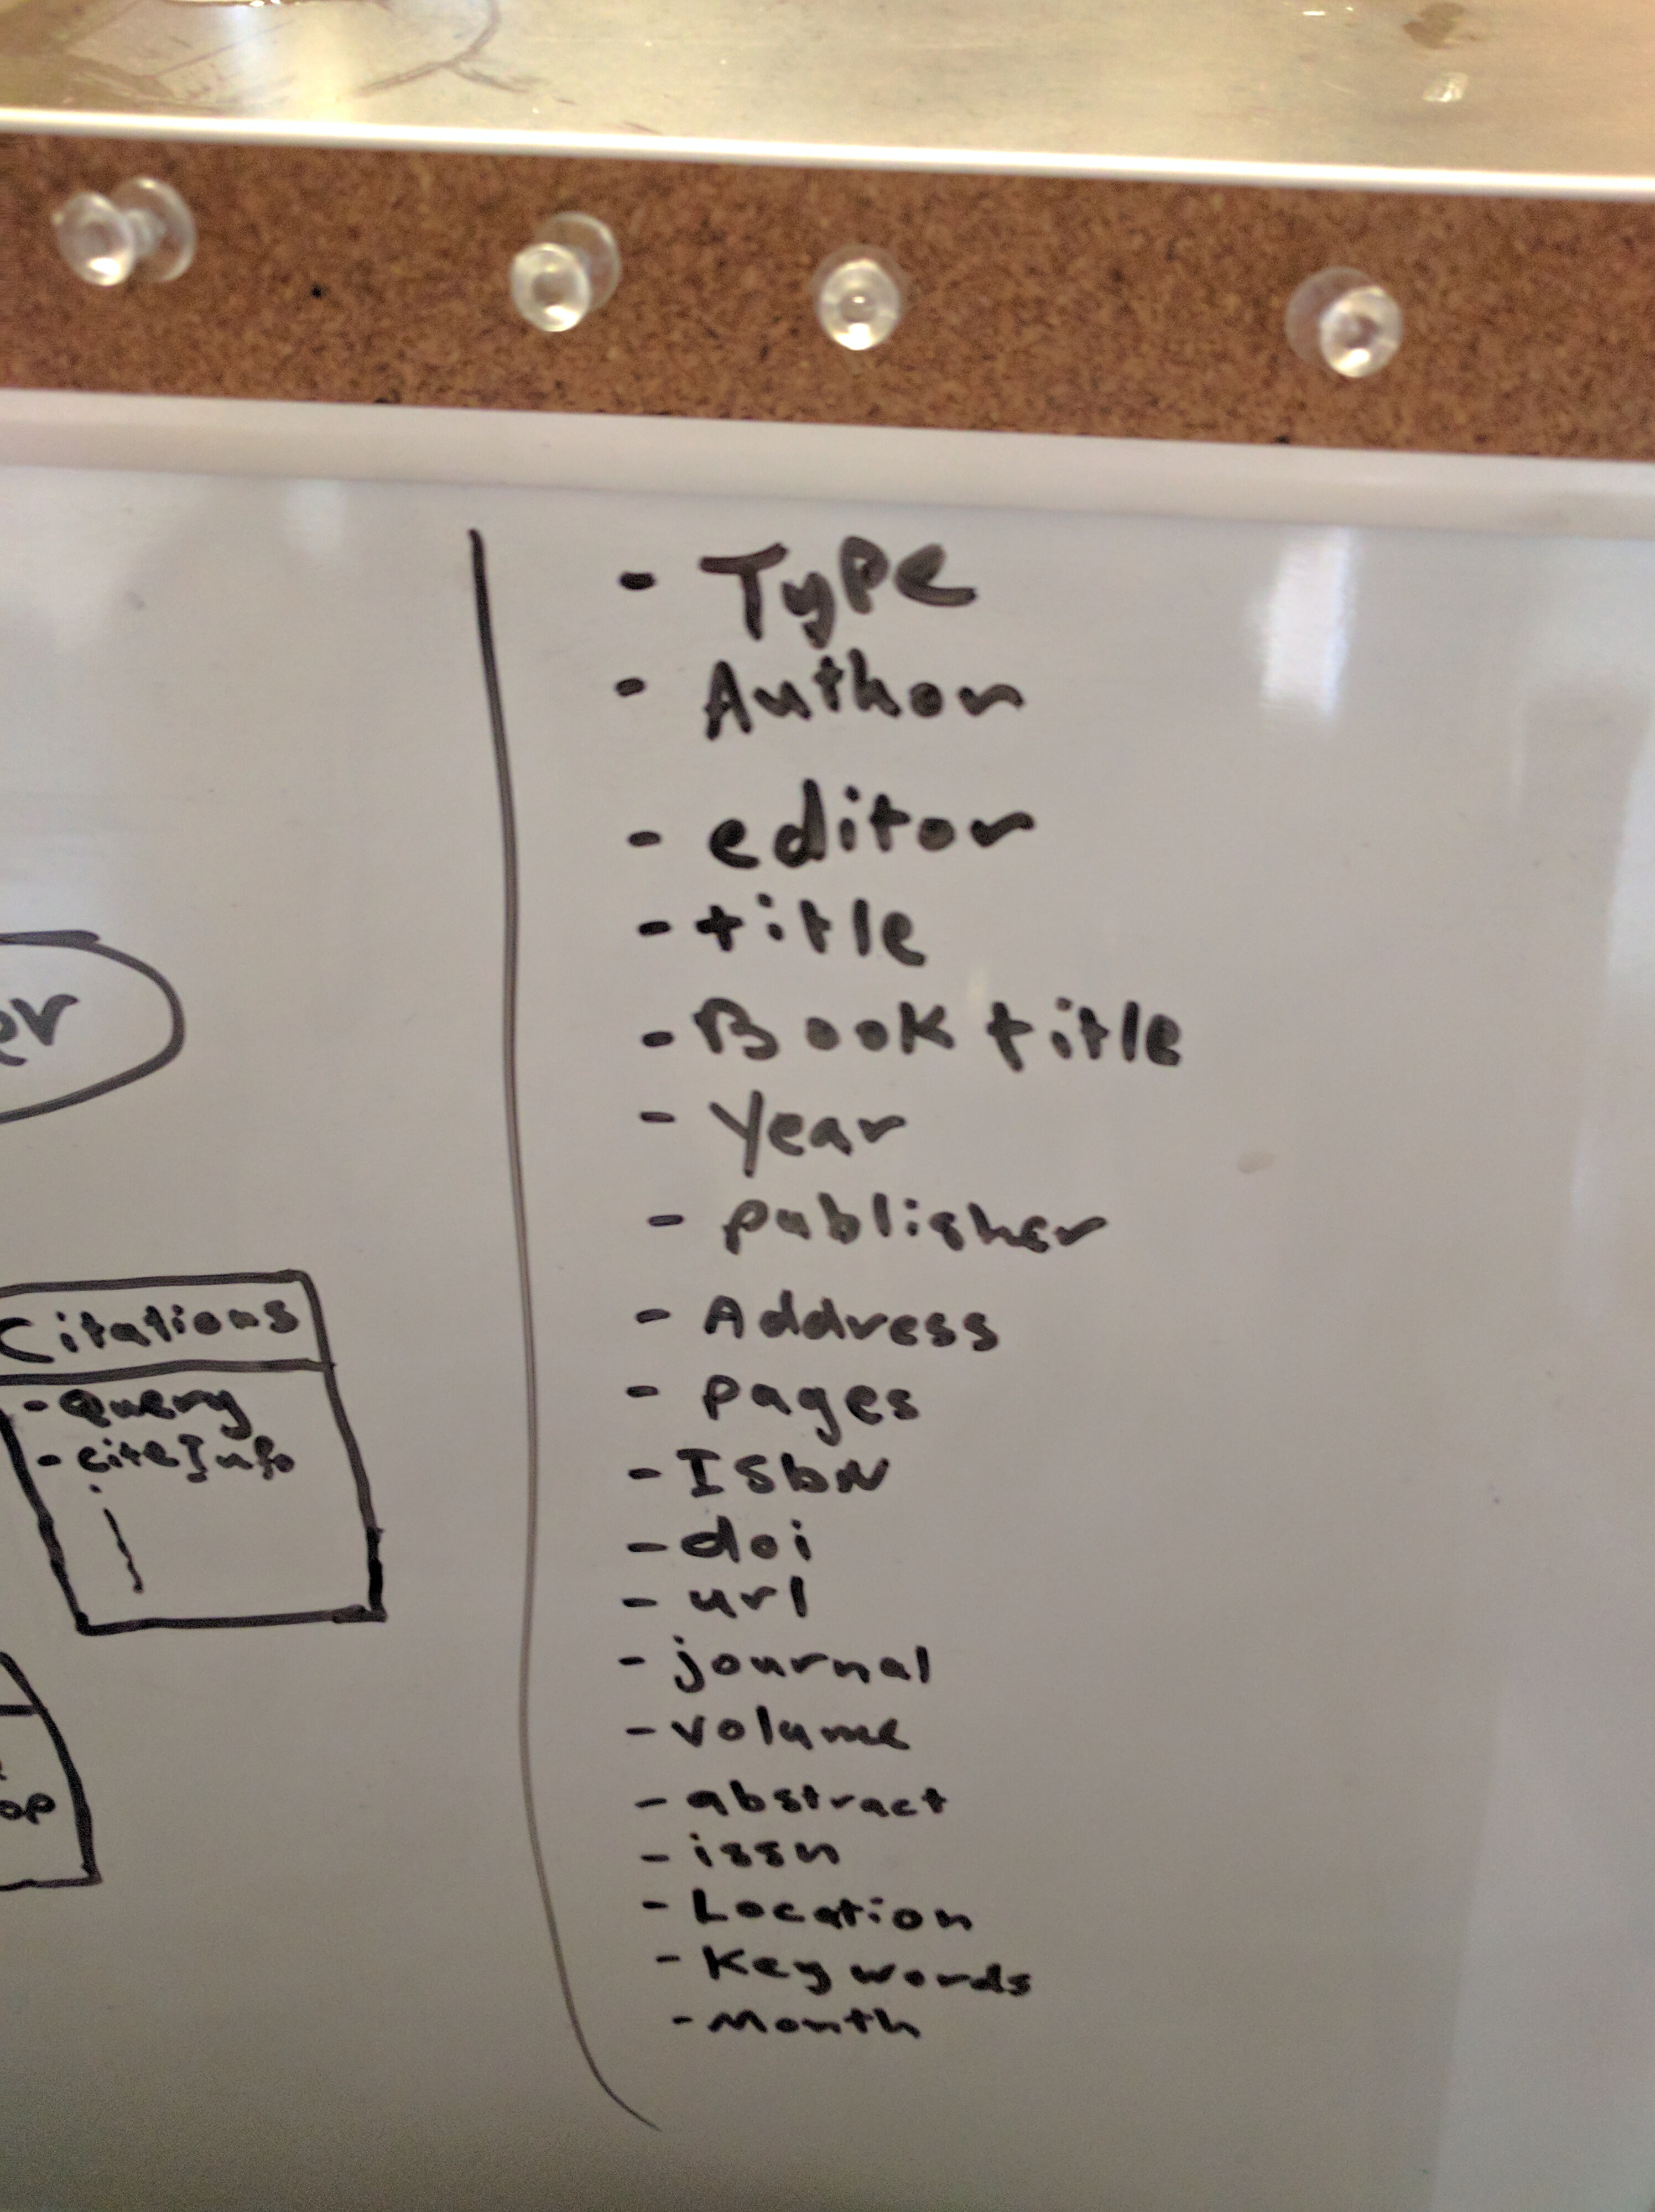 er
Citations
- query
- citeInfo
op
- Type
- Author
- editor
- title
- Book title
- Year
- publisher
- Address
- pages
- ISbN
- doi
- url
- journal
- volume
- abstract
- issn
- Location
- Key words
- Month